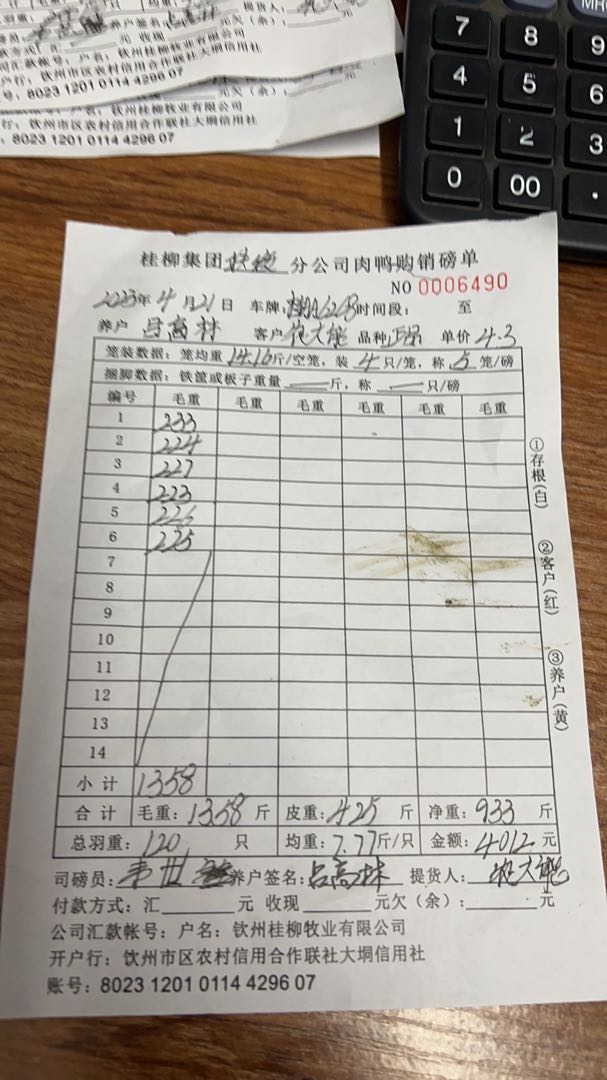 户行：钦州市区农村信用合作联社大垌信用社
号：8023 1201 0114 4296 07
户名：钦州桂柳牧业有限公司
欠（余）：
行：钦州市区农村信用合作联社大垌信用社
：8023 1201 0114 4296 07
7 8 9
4 5 6
1 2 3
0 00 ·
桂柳集团 分公司肉鸭购销磅单
NO 0006490
2023年4月21日 车牌： 时间段： 至
养户 吕高林 客户 农大能 品种 单价 4.3
笼装数据：笼均重14.16斤/空笼，装4只/笼，称5笼/磅
捆脚数据：铁筐或板子重量 斤，称 只/磅
编号 毛重 毛重 毛重 毛重 毛重 毛重
1 233
2 224
3 227
4 223
5 226
6 225
7
8
9
10
11
12
13
14
小计 1358
合计 毛重：1358斤 皮重：425斤 净重：933斤
总羽重：120只 均重：7.77斤/只 金额：4012元
司磅员：韦世 养户签名：吕高林 提货人：农大能
付款方式：汇 元 收现 元欠（余）： 元
公司汇款帐号：户名：钦州桂柳牧业有限公司
开户行：钦州市区农村信用合作联社大垌信用社
账号：8023 1201 0114 4296 07
①存根（白）
②客户（红）
③养户（黄）